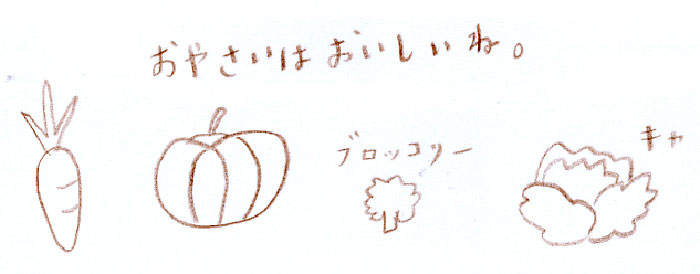 おやさいはおいしいね。
ブロッコリー
キャ